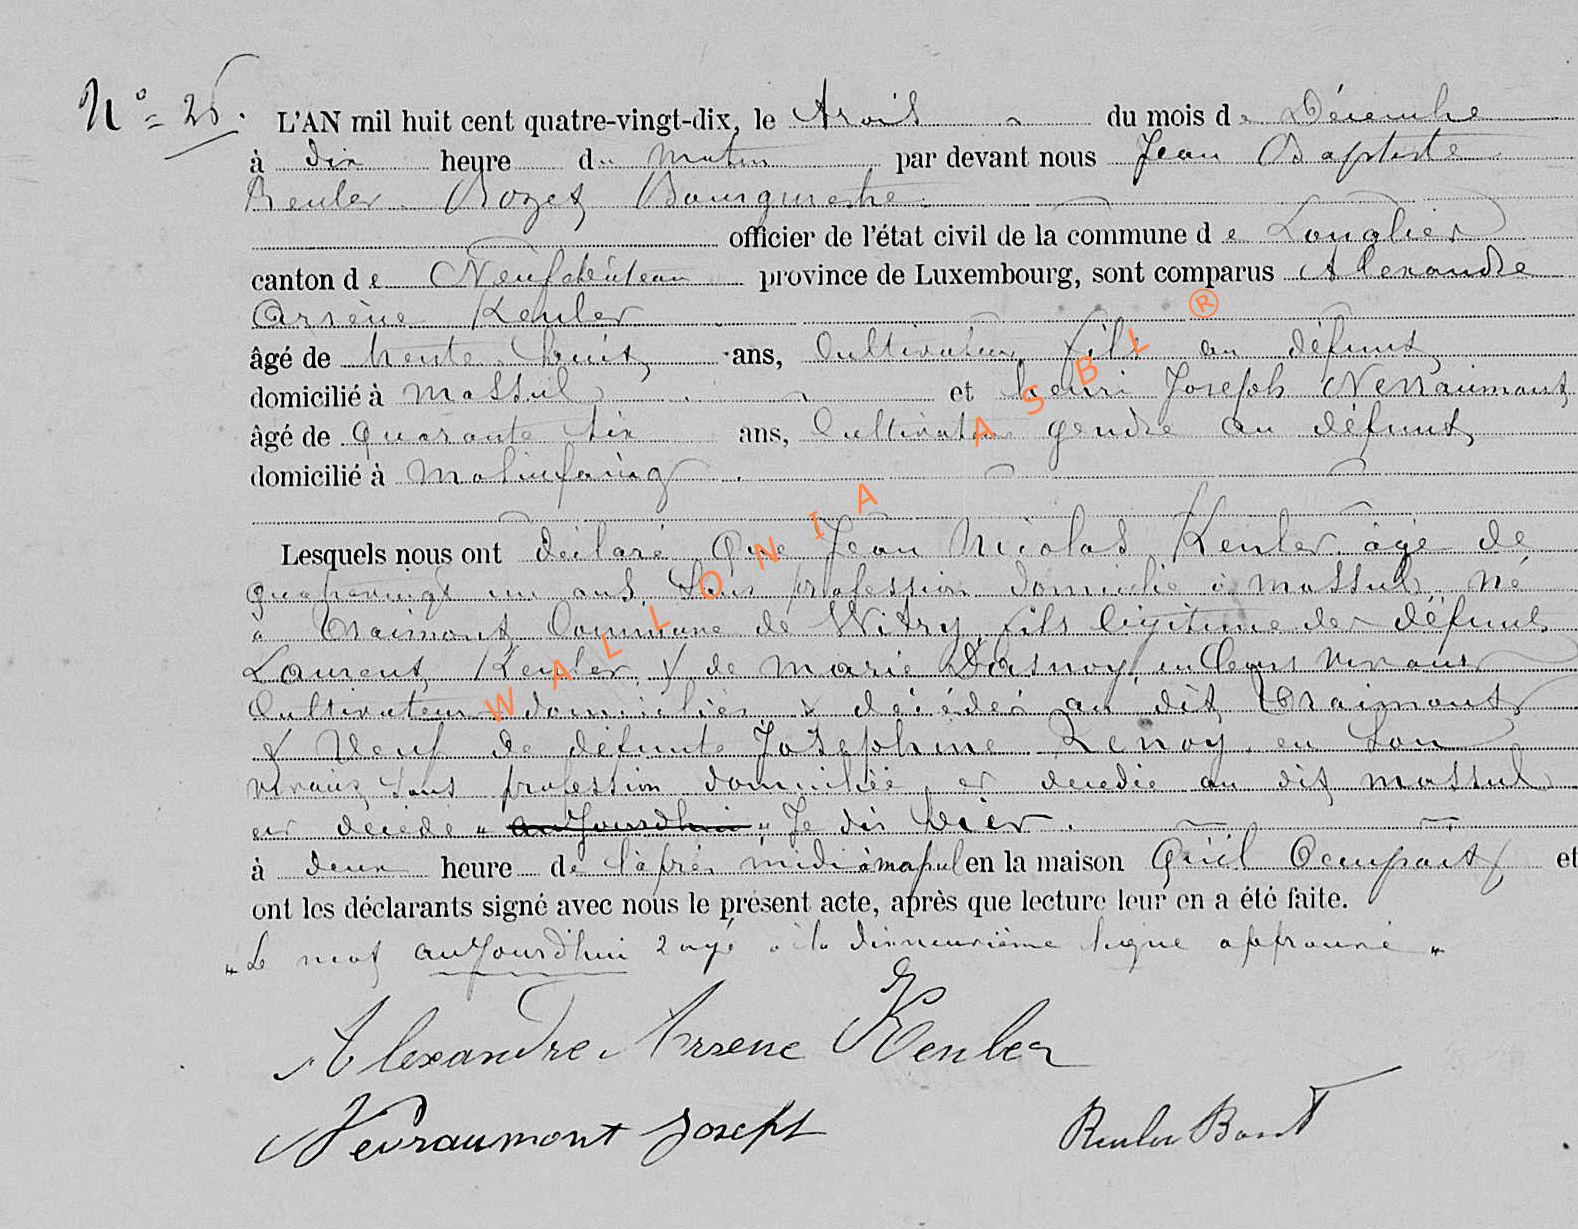 N° 26. L'AN mil huit cent quatre-vingt-dix, le trois du mois de Décembre
à dix heure du matin par devant nous Jean Baptiste
Reuler Bourgmestre
officier de l'état civil de la commune de Longlier
canton de Neufchâteau province de Luxembourg, sont comparus Alexandre
Arsène Keuler
âgé de trente huit ans, Cultivateur, fils au défunt
domicilié à Massul et henri Joseph Nevraumont
âgé de quarante six ans, Cultivateur gendre au défunt
domicilié à Molinfaing
Lesquels nous ont déclaré Que Jean Nicolas Keuler âgé de
quatrevingt un ans, Sans profession domicilié à Massul, né
à Traimont Commune de Witry, fils légitime des défunts
Laurent Keuler & de Marie Dasnoy, en leurs vivants
Cultivateurs domiciliés & décédés au dit Traimont
& Veuf de défunte Josephine Renoy en son
vivant sans profession domiciliée et décédée au dit Massul
est décédé " aujourdhui " Je dis hier.
à deux heure de l'après midi à Massul en la maison Qu'il Occupait et
ont les déclarants signé avec nous le présent acte, après que lecture leur en a été faite.
" Le mot aujourd'hui rayé à la dixneuvième ligne approuvé "
Alexandre Arsene Keuler
Nevraumont Joseph Reuler
WALLONIA ASBL ®